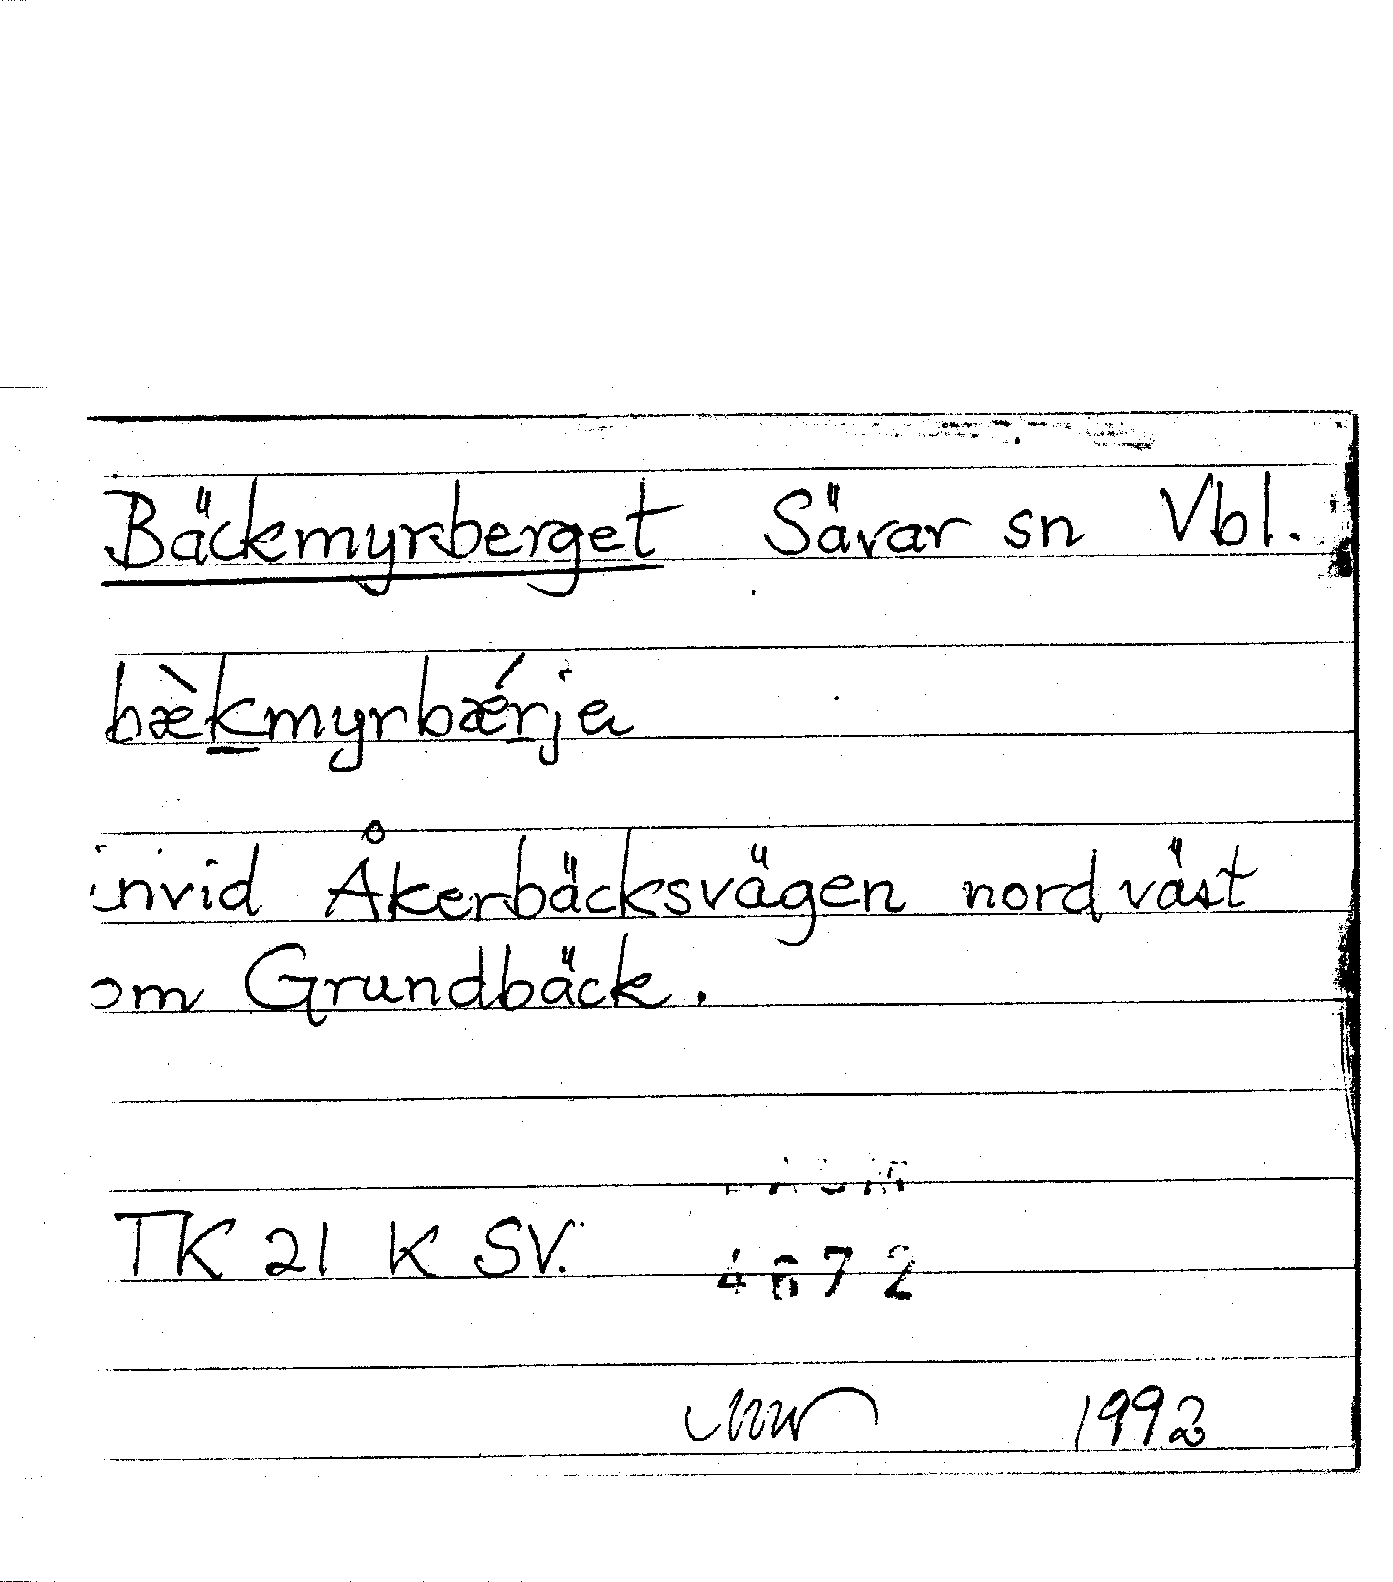 Bäckmyrberget Sävar sn Vbl.
bæ̀kmyrbǽrja
invid Åkerbäcksvägen nordväst
om Grundbäck.
TK 21 K SV.
4672
1992